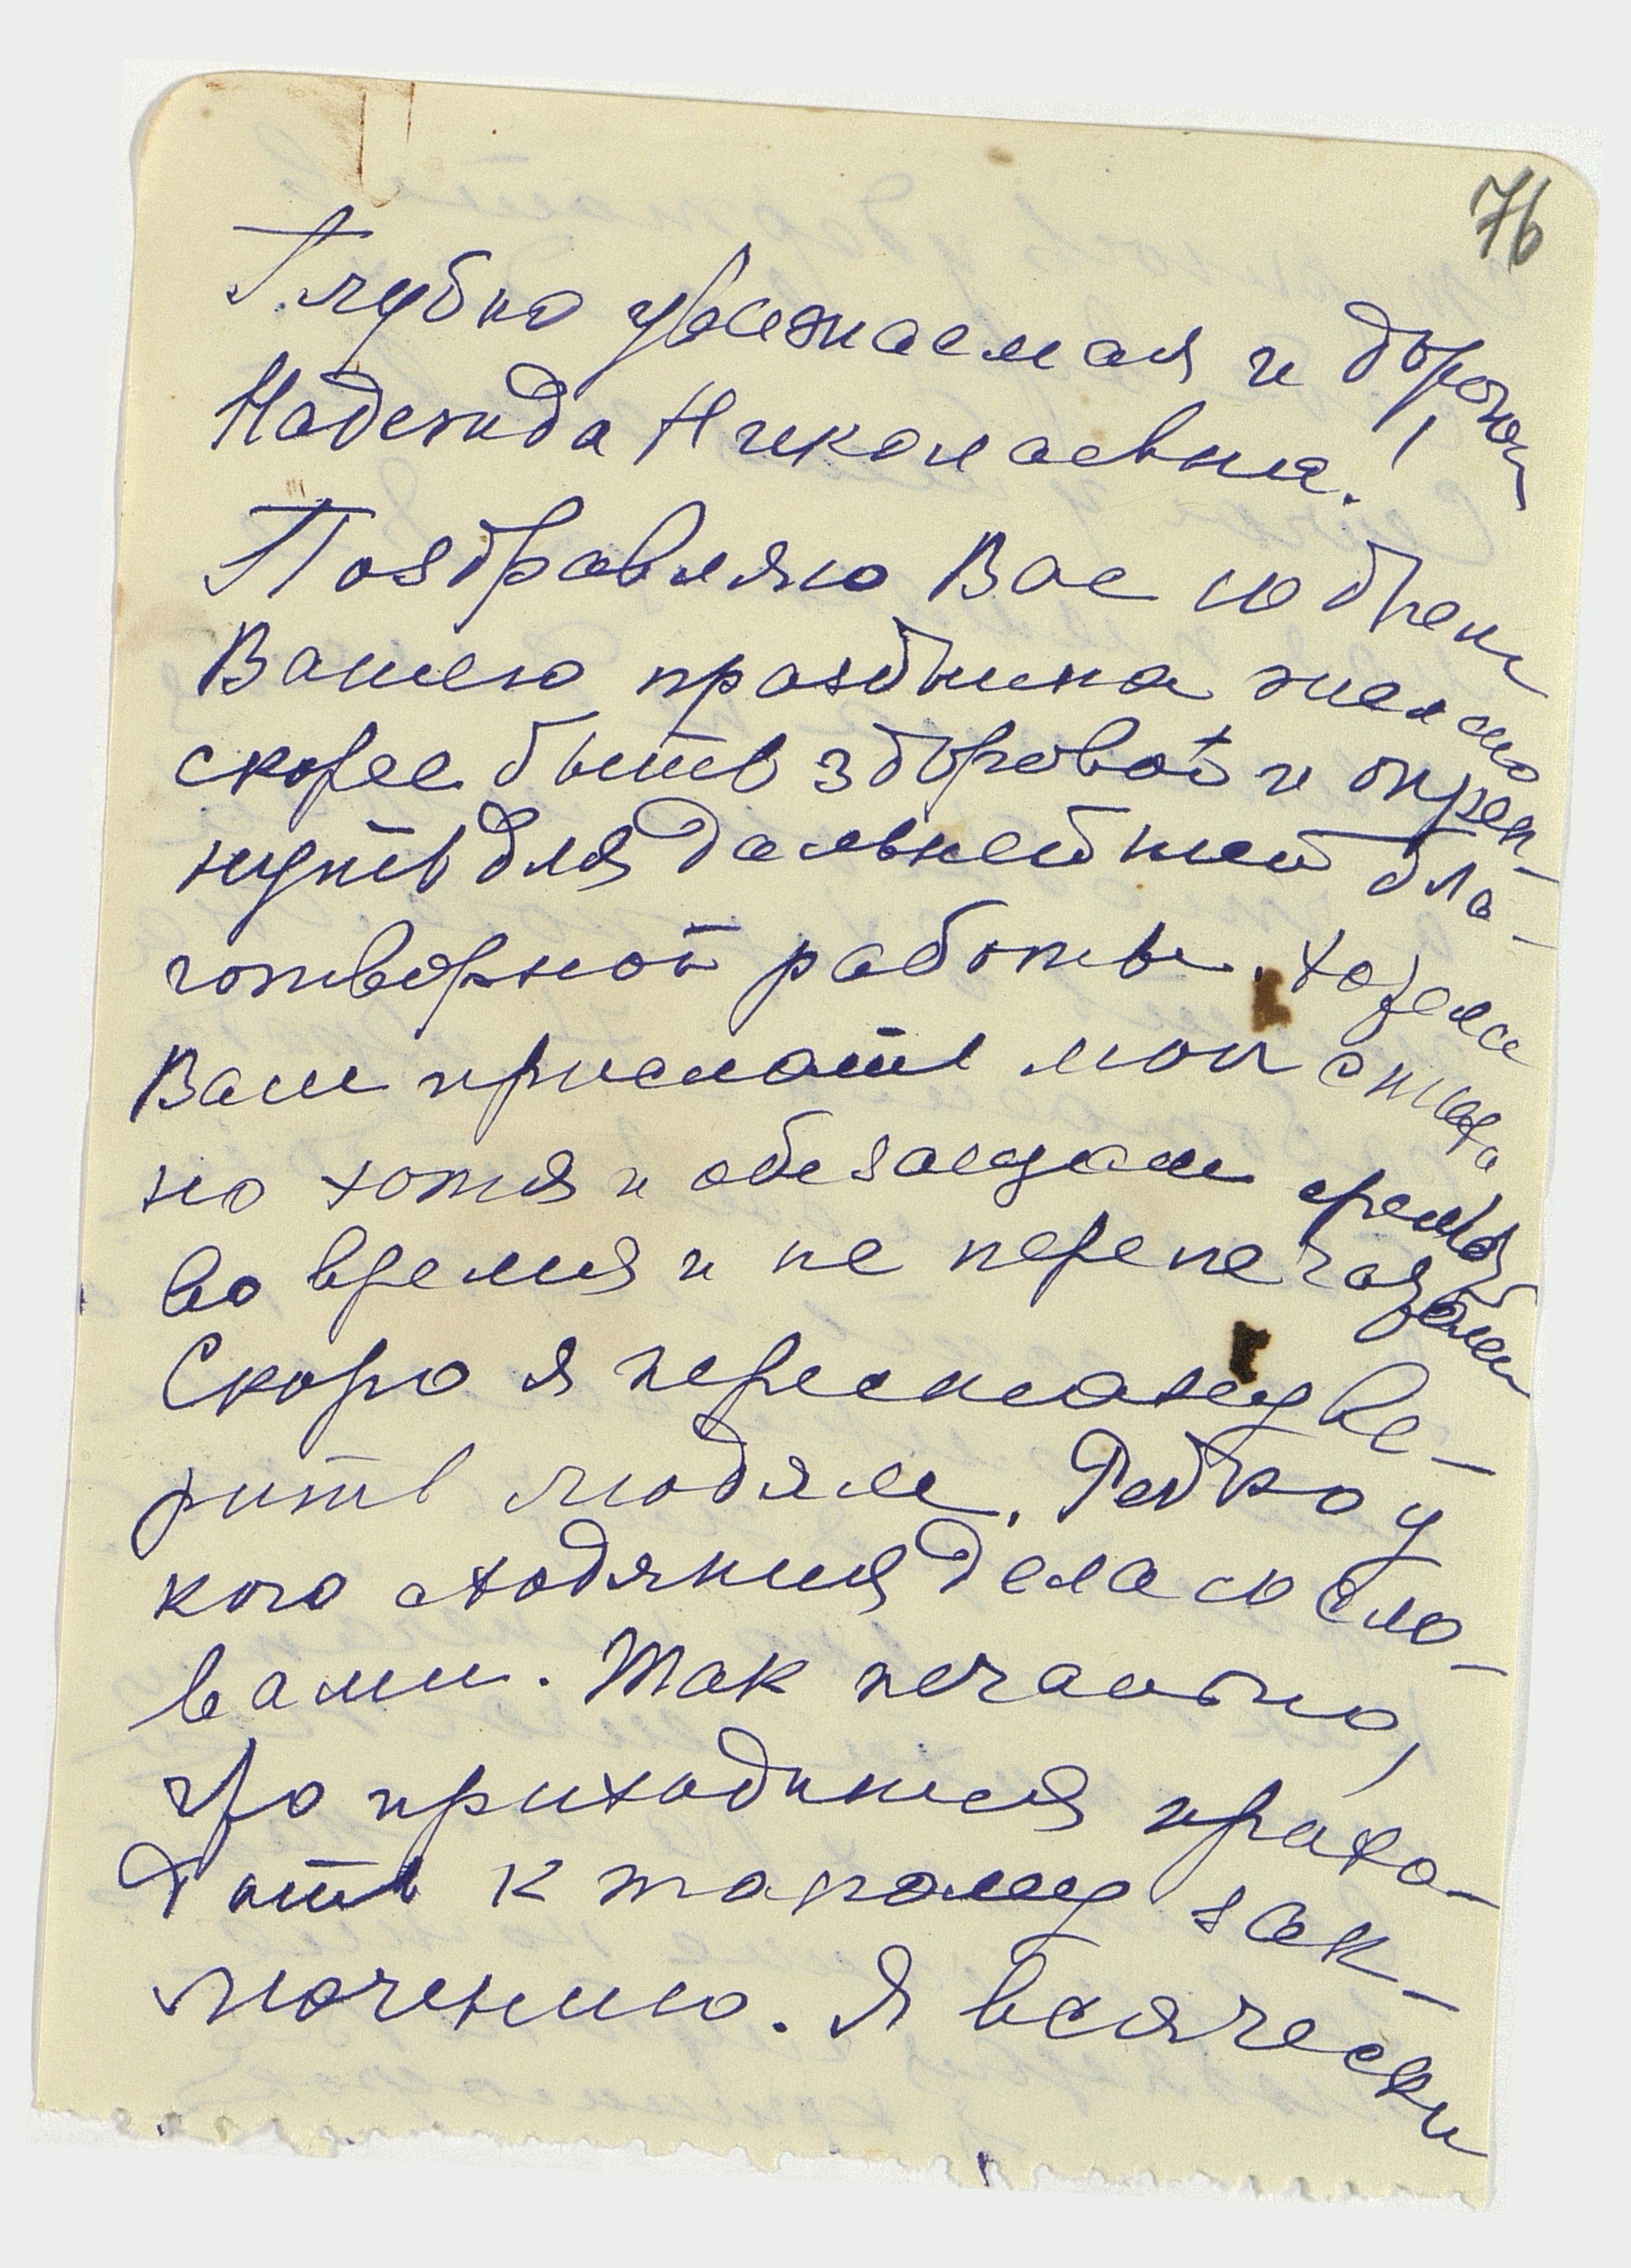 76
Глубко уважаемая и дорогая
Надежда Николаевна!
Поздравляю Вас со днем
Вашего праздника желаю
скорее быть здоровой и окреп-
нуть для дальнейшей бла-
готворной работы. Хотела
Вам прислать мои стихи
но хотя и обезащали
во время и не перепечатали
Скоро я перестану ве-
рить людям. Редко у
кого сходятся дела со сло-
вами. Так печально,
что приходится прихо-
дить к такому зак-
лючению. Я всячески